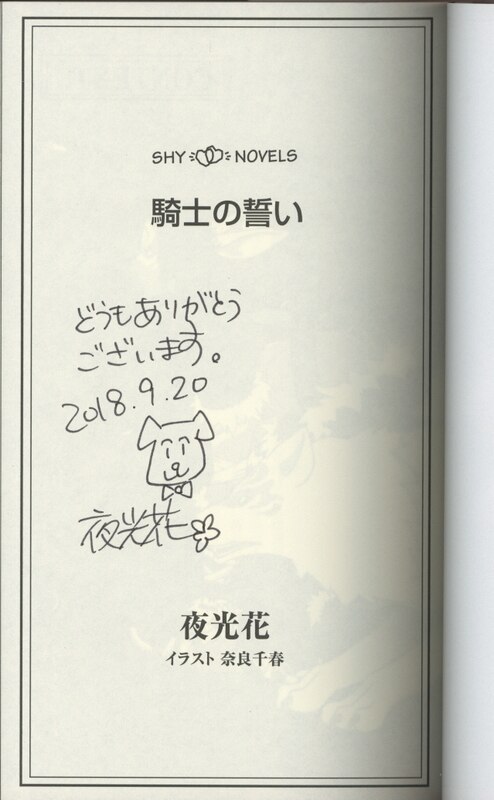 SHY NOVELS
騎士の誓い
どうもありがとう
ございます。
2018.9.20
夜光花
夜光花
イラスト 奈良千春